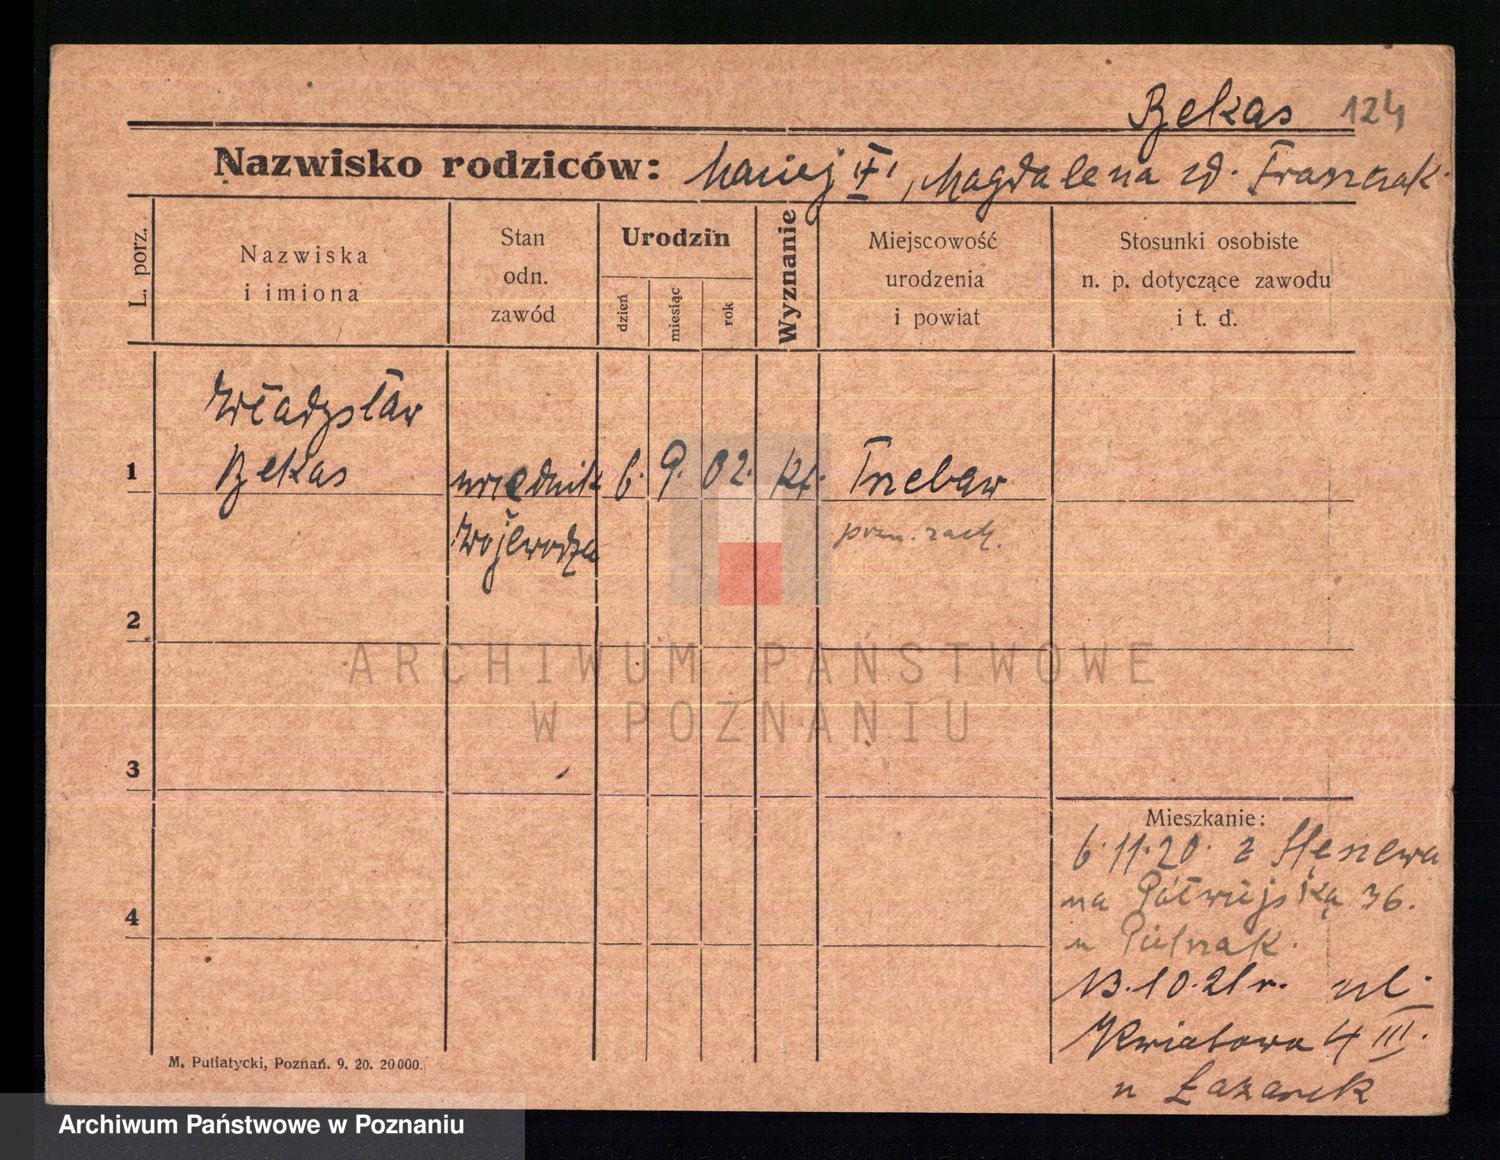 Bękas 124
Nazwisko rodziców: Maciej VI, Magdalena zd. Franczak.
L. porz.
Nazwiska
i imiona
Stan
odn.
zawód
Urodzin
dzień
miesiąc
rok
Wyznanie
Miejscowość
urodzenia
i powiat
Stosunki osobiste
n. p. dotyczące zawodu
i t. d.
Władysław
1 Bękas urzędnik 6. 9. 02. kt. Trzebaw
Wojewodz. pozn. zach.
2
ARCHIWUM PAŃSTWOWE
W POZNANIU
3
4
Mieszkanie:
6.11.20. z
na 36.
u
13.10.21 r. ul.
Kwiatowa 4 III.
u
M. Putiatycki, Poznań. 9. 20. 20000.
Archiwum Państwowe w Poznaniu